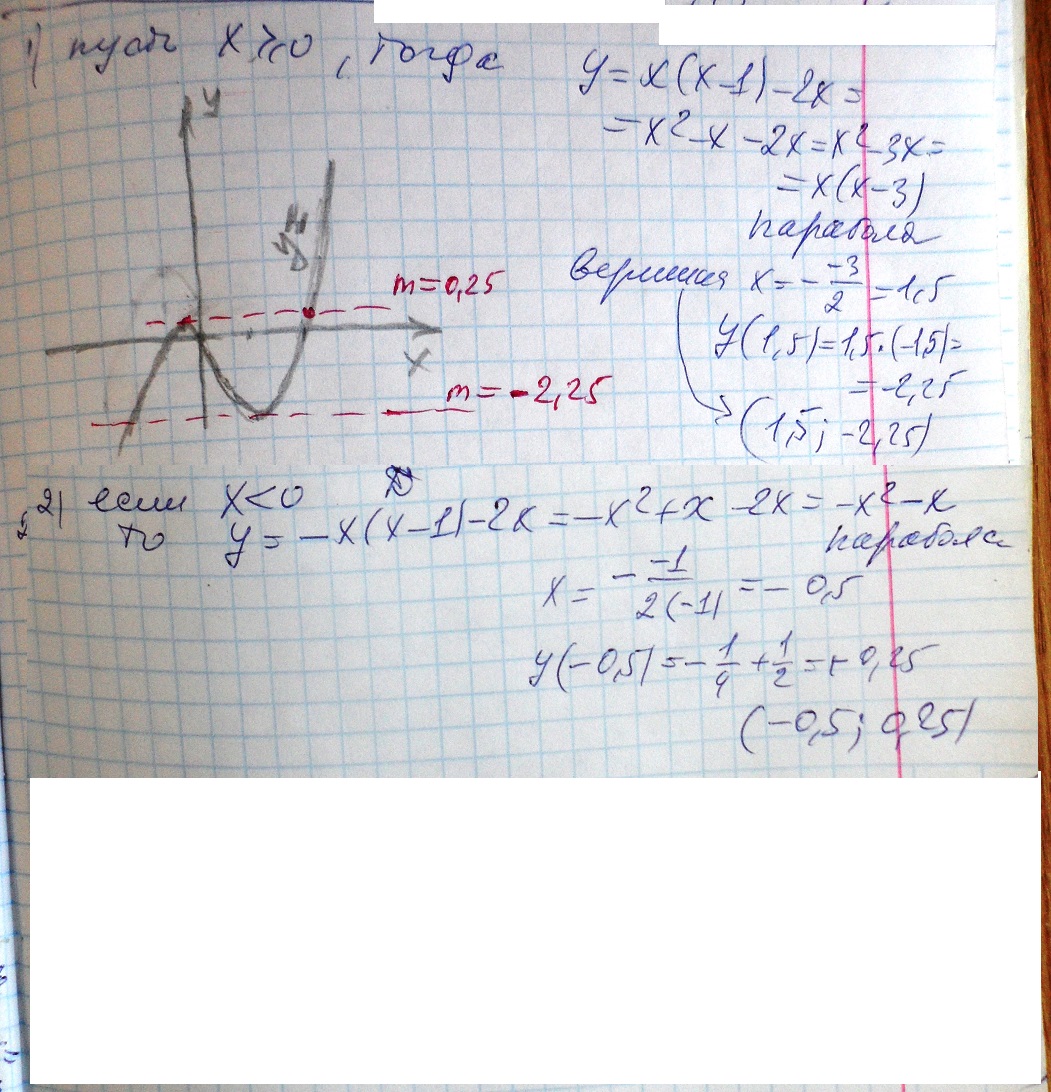 1) пусть x ≥ 0, тогда
y = x(x-1) - 2x =
= x² - x - 2x = x² - 3x =
= x(x-3)
парабола
вершина x = - -3/2 = 1,5
y(1,5) = 1,5·(-1,5) =
= -2,25
(1,5; -2,25)
y
m = 0,25
x
m = -2,25
2) если x < 0
то y = -x(x-1) - 2x = -x² + x - 2x = -x² - x
парабола
x = - -1/2(-1) = - 0,5
y(-0,5) = - 1/4 + 1/2 = + 0,25
(-0,5; 0,25)